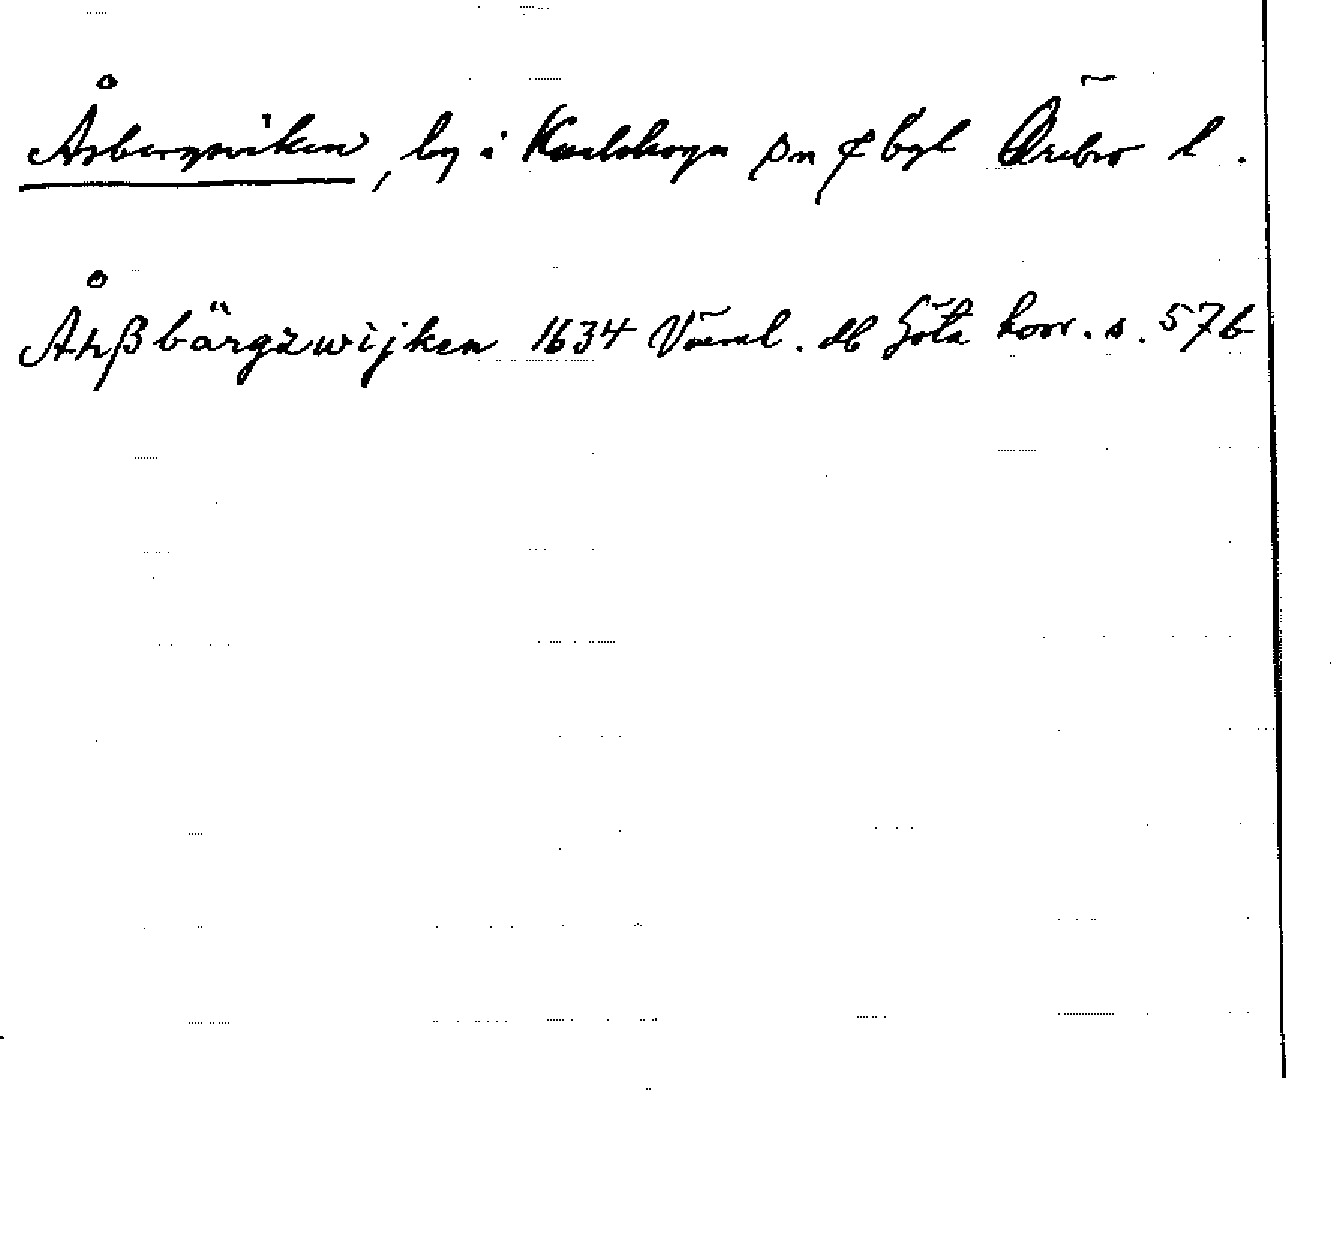 Åsbergsviken, by i Karlskoga sn o bgl Örebro l.
Åhßbärgzwijken 1634 Värml. db Göta hovr. s. 57b